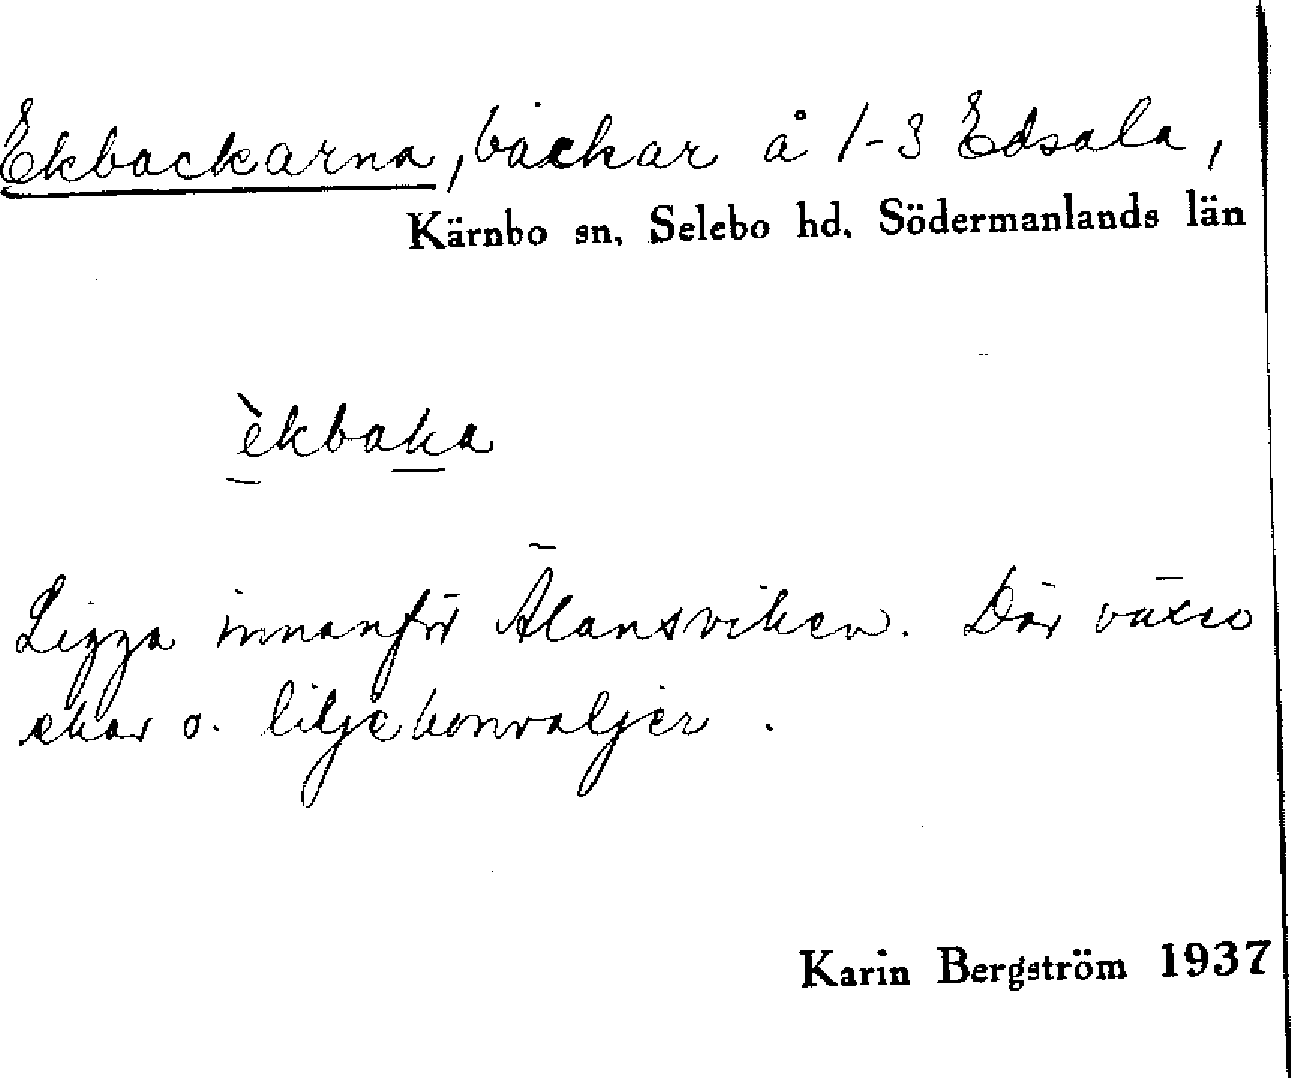 Ekbackarna, backar å 1-3 Edsala,
Kärnbo sn, Selebo hd. Södermanlands län
èkbaka
Ligga innanför Älansviken. Där växa
ekar o. liljekonvaljer.
Karin Bergström 1937